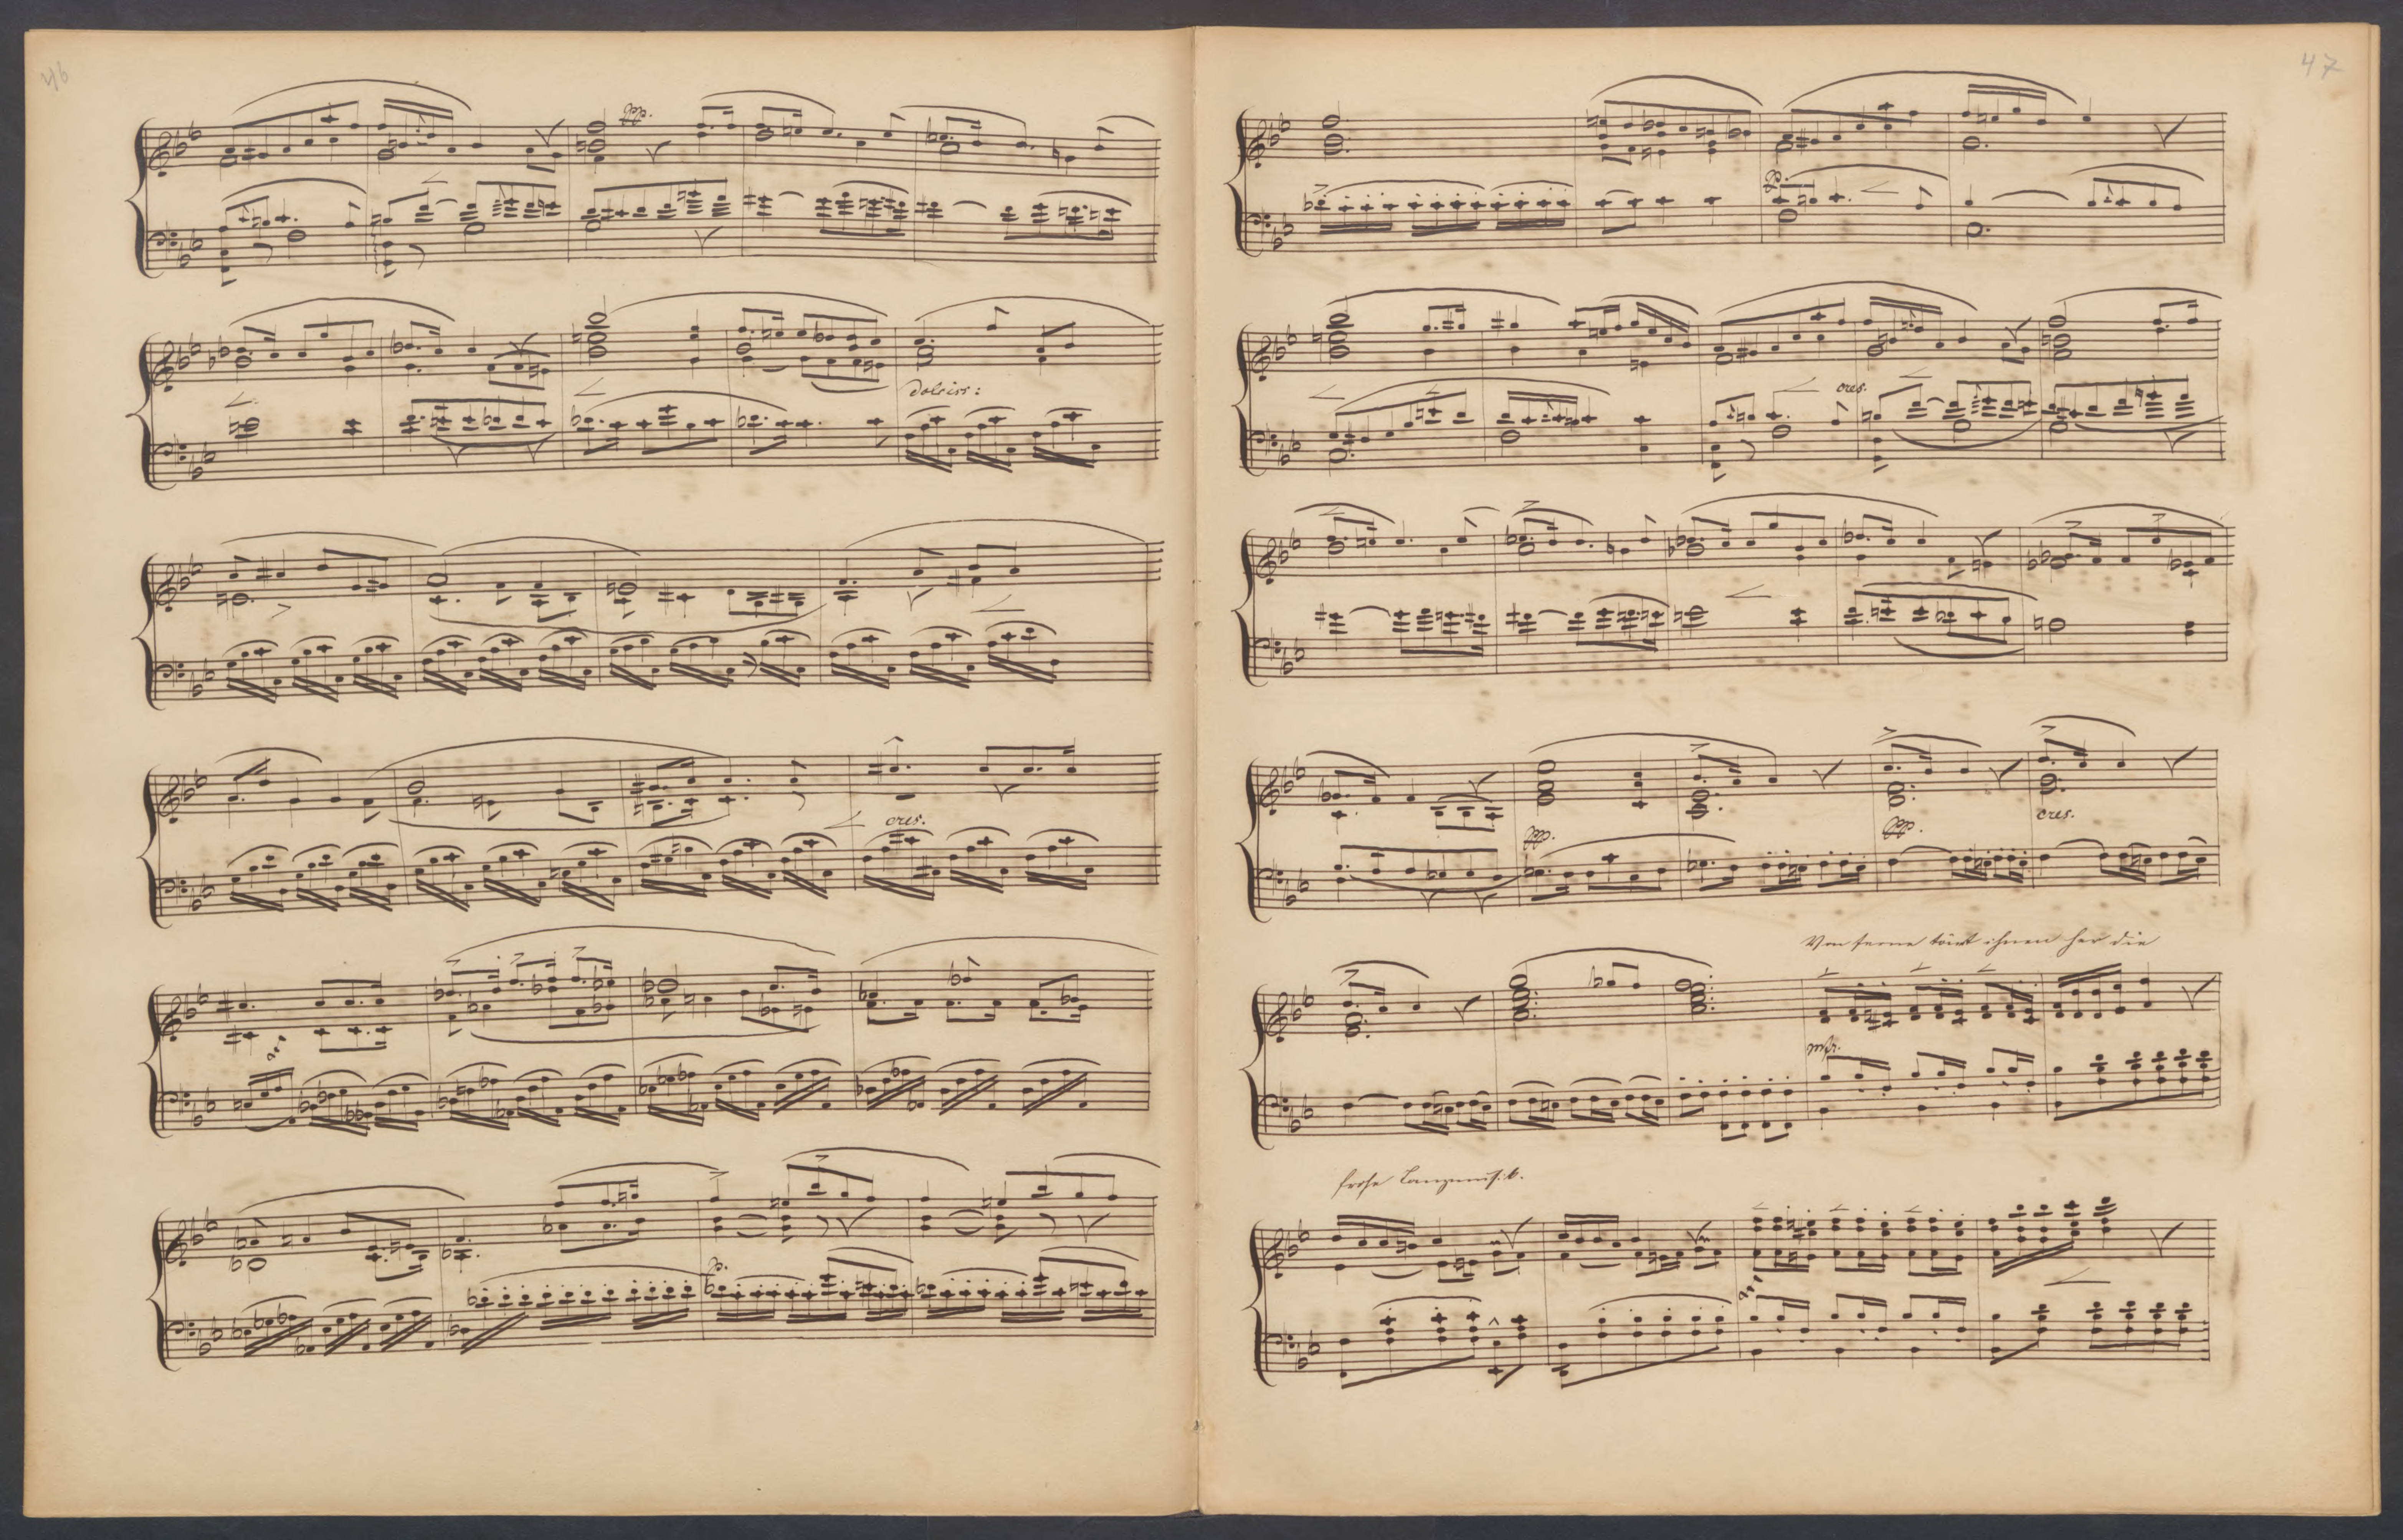 46
ppp.
dolciss:
cres.
p.
47
p.
cres.
ppp.
ppp.
cres.
Von ferne tönt ihnen her die
mfr.
frohe Tanzmusik.